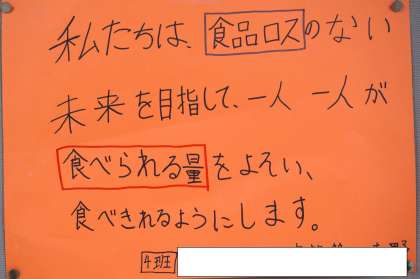 私たちは、食品ロスのない
未来を目指して、一人一人が
食べられる量をよそい、
食べきれるようにします。
4班